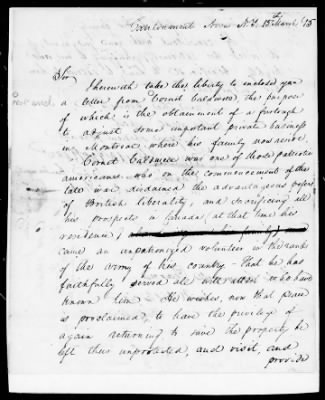 Cantonment Near N.Y. 15th March / 15
Sir
I herewith take the liberty to inclose you
a letter from Cornet Caldwell, the purpose
of which is the obtainment of a furlough
to adjust some important private business
in Montreal where his family now reside.
Cornet Caldwell was one of those patriotic
americans, who on the commencement of the
late war, disdained the advantageous proffers
of British liberality, and sacrificing all
his prospects in Canada, at that time his
residence,
came an unpatronized volunteer in the ranks
of the army of his country – That he has
faithfully served all will attest who have
known him. He wishes, now that peace
is proclaimed, to have the privilege of
again returning, to save the property he
left thus unprotected, and visit, and
provide